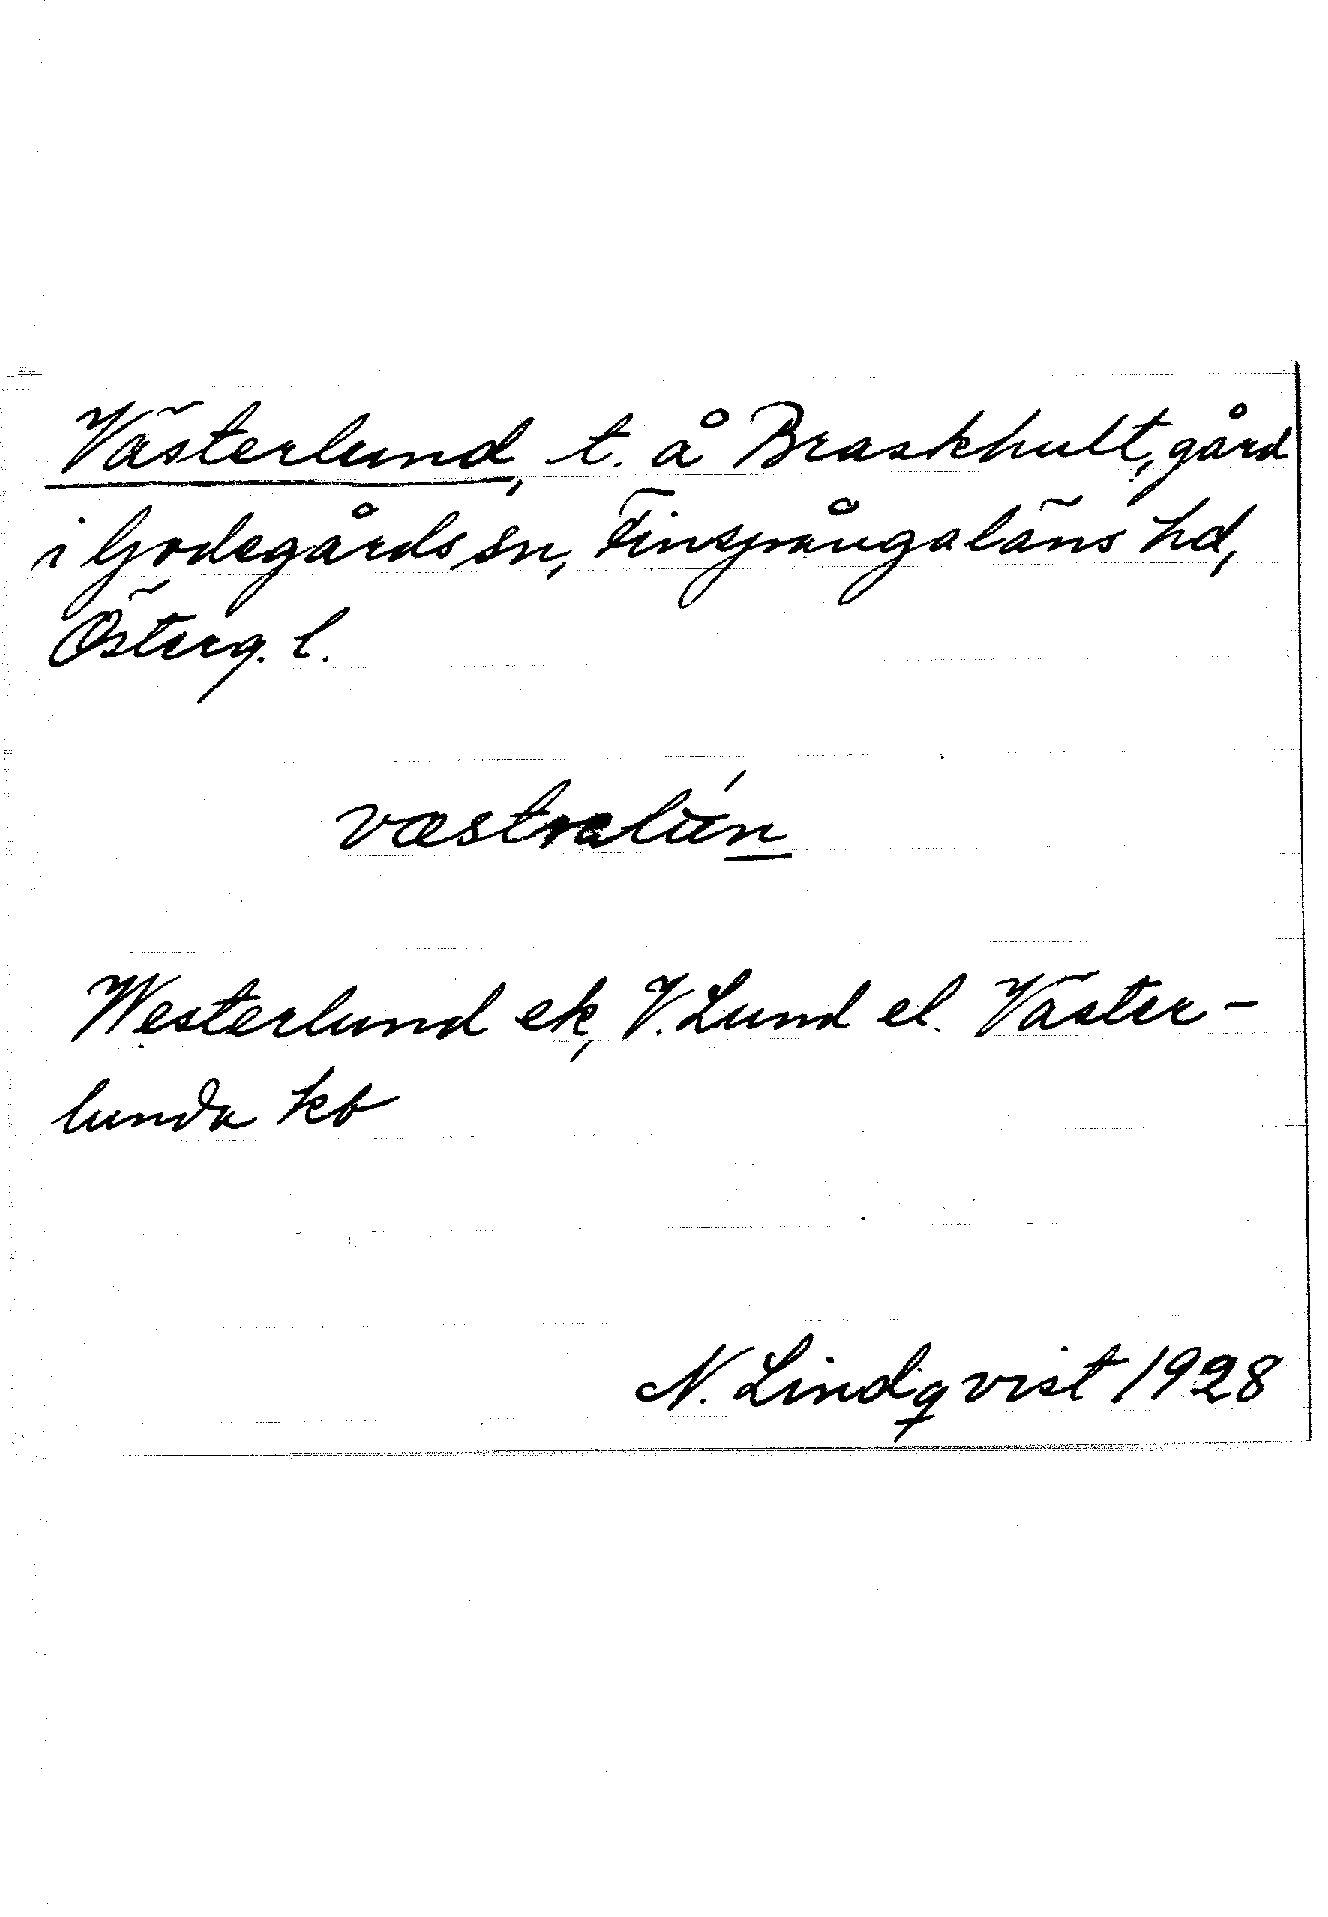 Västerlund, t. å Braskhult, gård
i Godegårds sn, Finspångaläns hd,
Österg. l.
væstralún
Westerlund ek, V. Lund el. Väster-
lunda kb
N. Lindqvist 1928